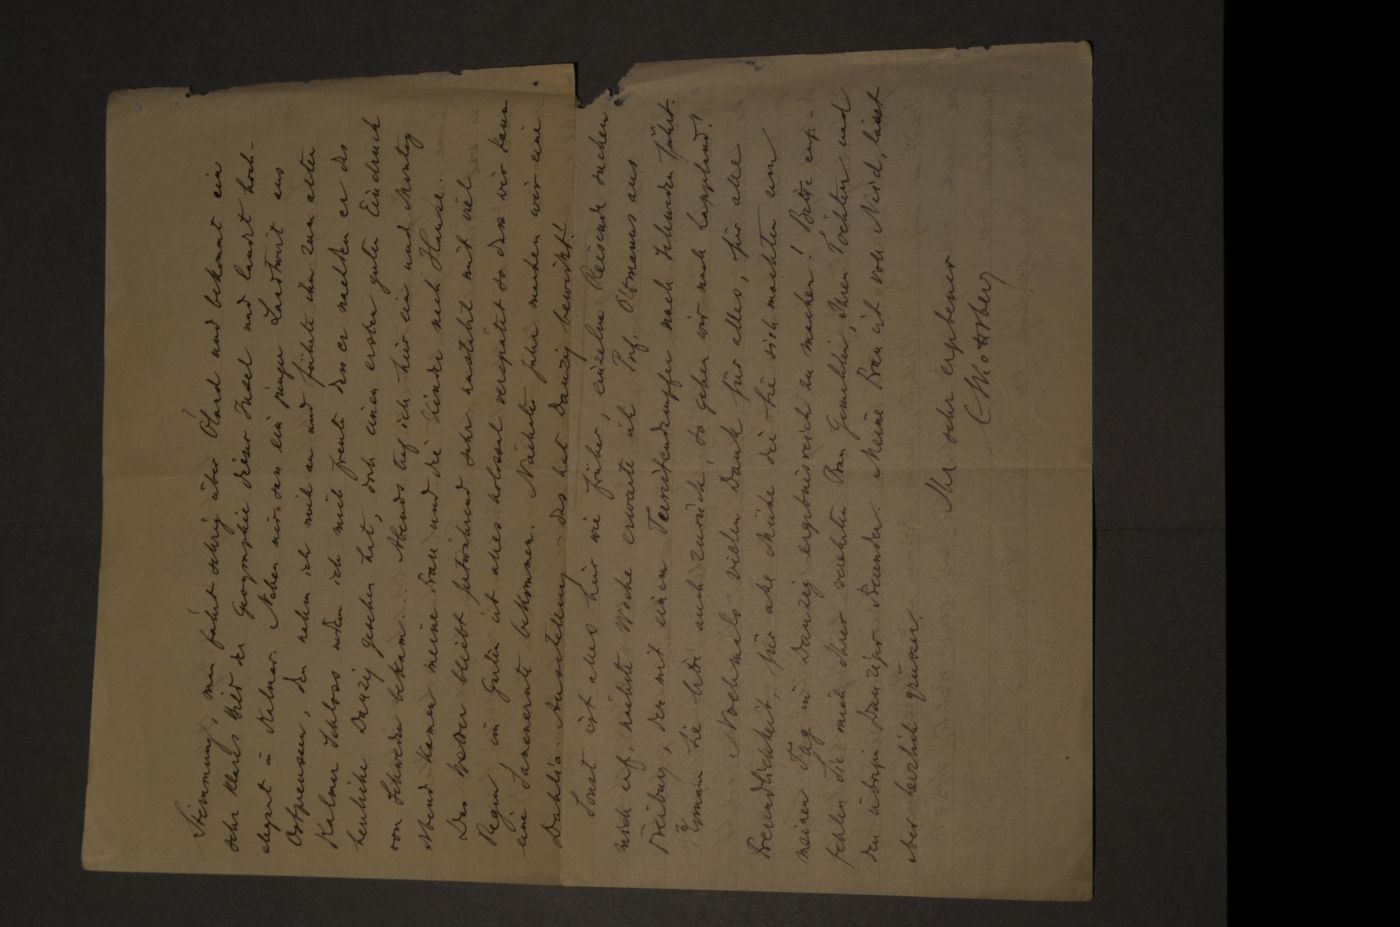 Stimmung, man fährt schräg über Öland und bekommt ein
sehr klares Bild der Geographie dieser Insel und landet hoch-
elegant in Kalmar. Neben mir sass ein junger Landwirt aus
Ostpreussen, den nahm ich mich an und führte ihn zum alten
Kalmar Schloss indem ich mich freute dass er nachdem er das
herrliche Danzig gesehen hat, doch einen ersten guten Eindruck
von Schweden bekam... Abends traf ich hier ein und Montag
Abend kamen meine Frau und die Kinder nach Hause...
Das Wetter bleibt fortwährend sehr instabil mit viel
Regen, im Garten ist alles kolossal verspätet so dass wir kaum
eine Samenernte bekommen. Nächstes Jahr machen wir eine
Dahlia-Ausstellung – das hat Danzig bewirkt!
Sonst ist alles hier wie früher, einzelne Reisende suchen
mich auf, nächste Woche erwarte ich Prof. Oltmanns aus
Freiburg, der mit einem Touristendampfer nach Schweden fährt.
Sie bitte auch zurück, so gehen wir nach Lappland!
Nochmals vielen Dank für alles, für alle
Freundlichkeit, für alle Mühe die Sie sich machten um
meinen Tag in Danzig ergebnisreich zu machen! Bitte emp-
fehlen Sie mich Ihrer verehrten Frau Gemahlin, Ihren Töchtern und
den übrigen Danziger Freunden. Meine Frau ist voll Neid, lässt
aber herzlich grüssen.
Ihr sehr ergebener
CSkottsberg